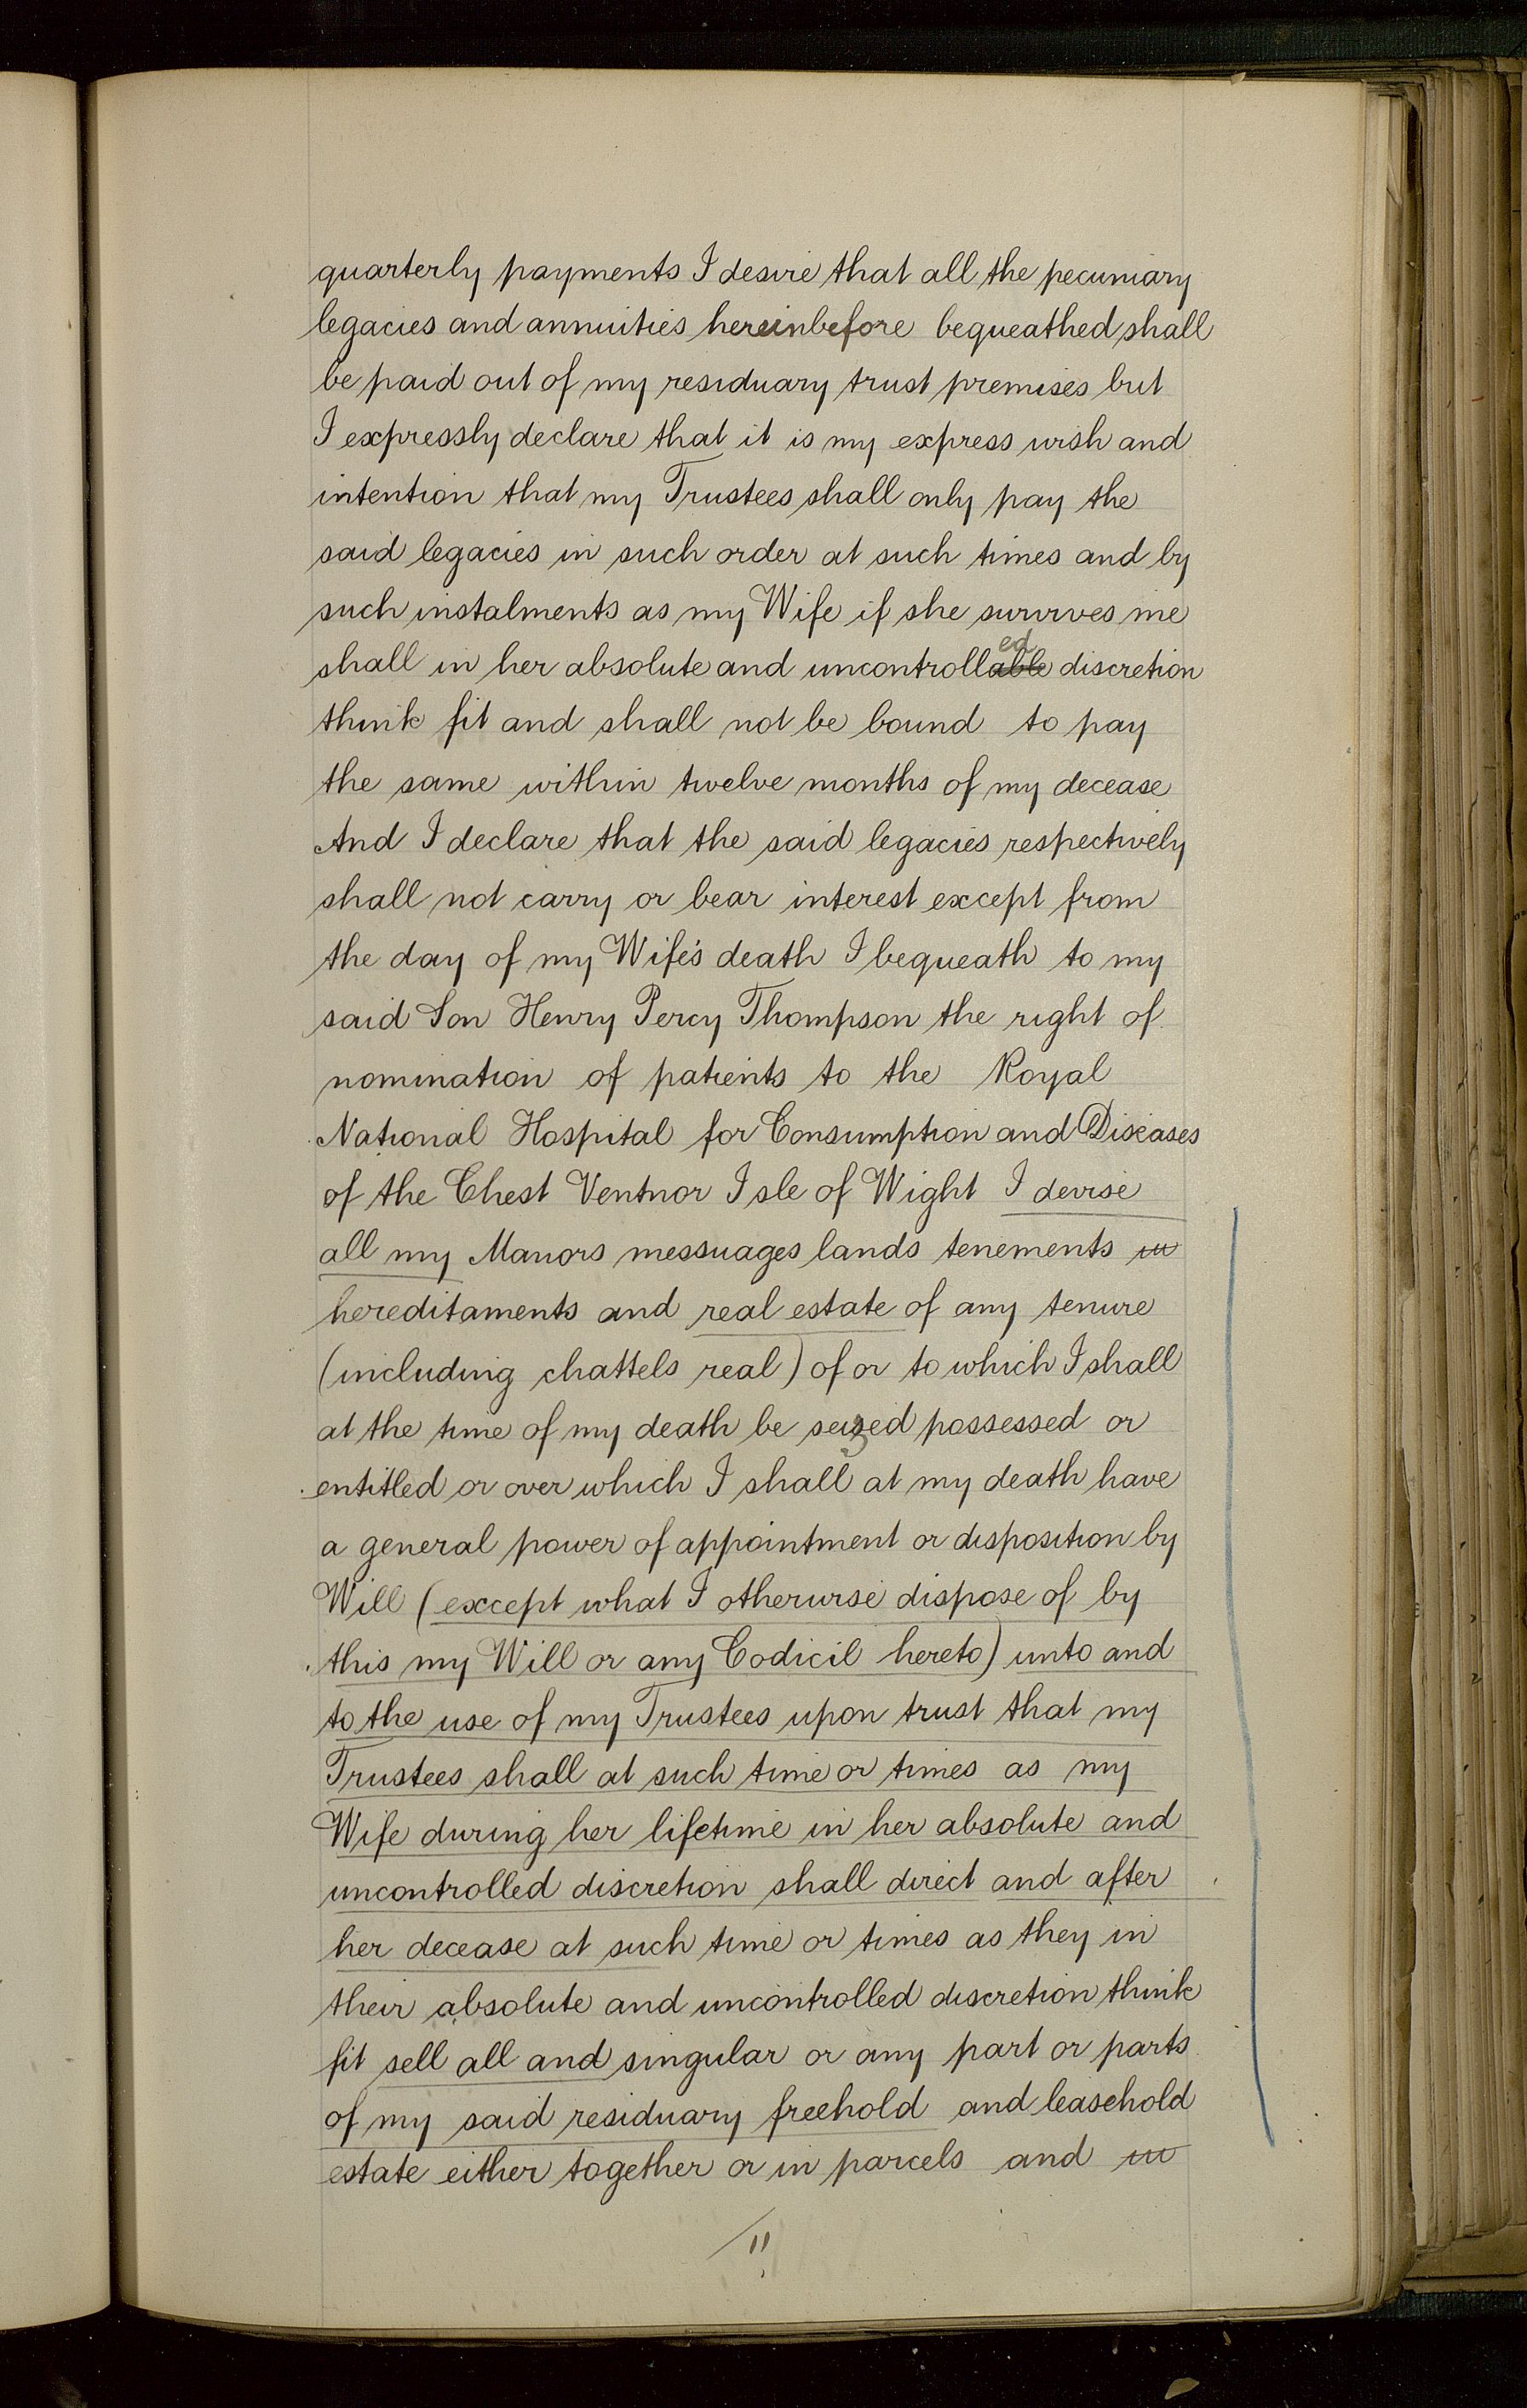 quarterly payments I desire that all the pecuniary
legacies and annuities hereinbefore bequeathed shall
be paid out of my residuary trust premises but
I expressly declare that it is my express wish and
intention that my Trustees shall only pay the
said legacies in such order at such times and by
such instalments as my Wife if she survives me
ed
shall in her absolute and uncontrollable discretion
think fit and shall not be bound to pay
the same within twelve months of my decease
And I declare that the said legacies respectively
shall not carry or bear interest except from
the day of my Wife's death I bequeath to my
said Son Henry Percy Thompson the right of
nomination of patients to the Royal
National Hospital for Consumption and Diseases
of the Chest Ventnor Isle of Wight I devise
all my Manors messuages lands tenements
hereditaments and real estate of any tenure
(including chattels real) of or to which I shall
at the time of my death be seized possessed or
entitled or over which I shall at my death have
a general power of appointment or disposition by
Will (except what I otherwise dispose of by
this my Will or any Codicil hereto) unto and
to the use of my Trustees upon trust that my
Trustees shall at such time or times as my
Wife during her lifetime in her absolute and
uncontrolled discretion shall direct and after
her decease at such time or times as they in
their absolute and uncontrolled discretion think
fit sell all and singular or any part or parts
of my said residuary freehold and leasehold
estate either together or in parcels and
11